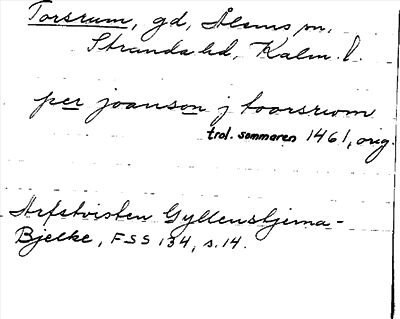 Torsrum, gd, Ålems sn,
Stranda hd, Kalm. l.
per joanson j toorsrwm
trol. sommaren 1461, orig.
Arfstvisten Gyllenstjerna-
Bjelke, FSS 134, s. 14.